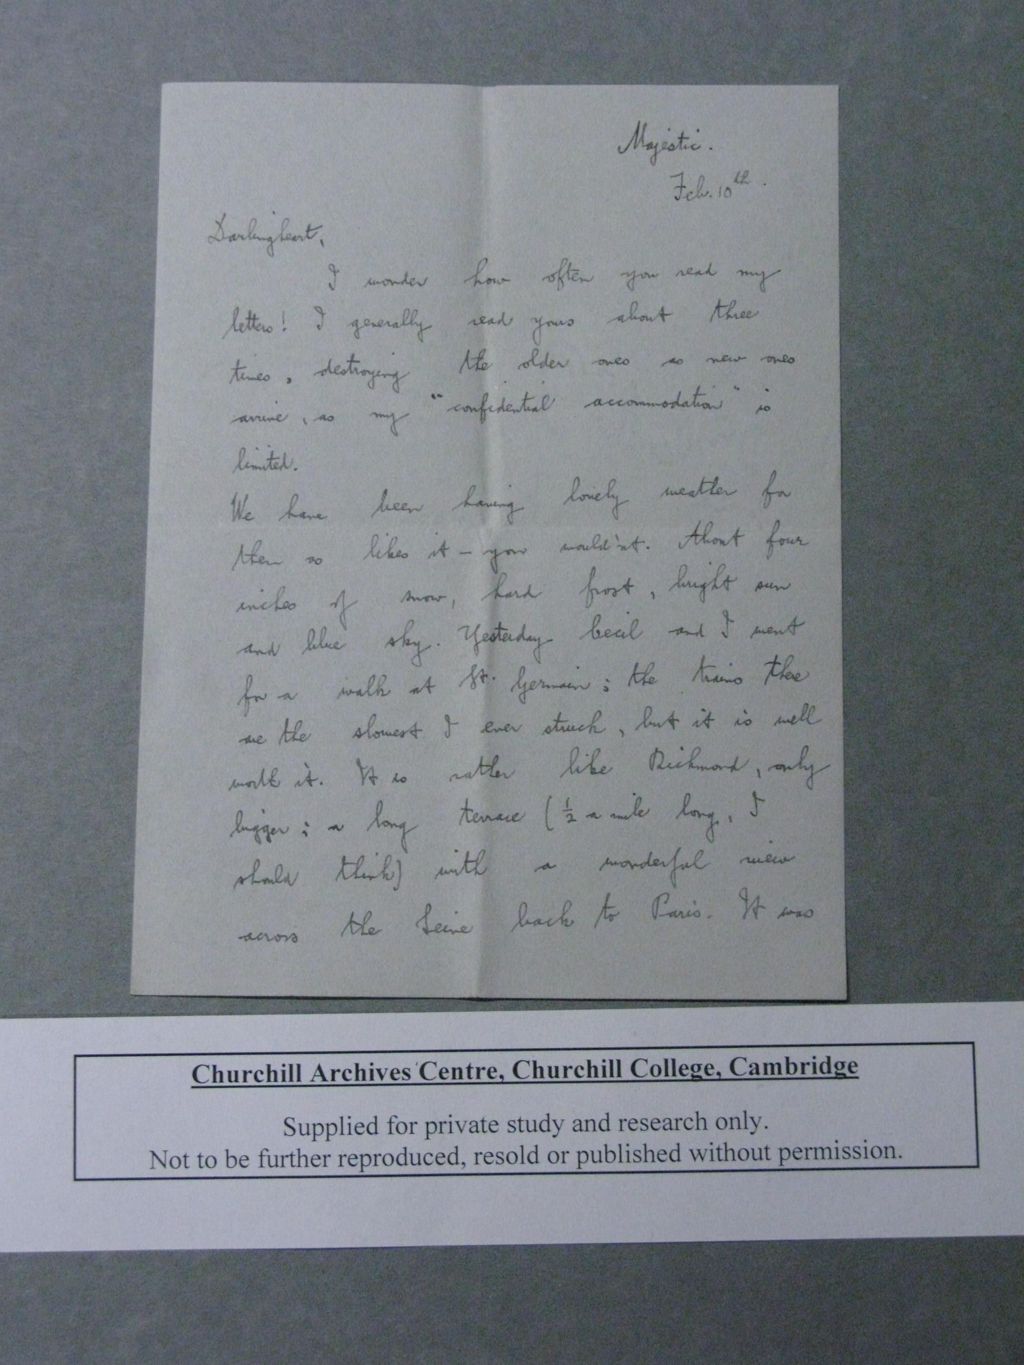 Majestic.
Feb. 10th.
Darlingheart,
I wonder how often you read my
letters! I generally read yours about three
times, destroying the older ones as new ones
arrive, as my "confidential accommodation" is
limited.
We have been having lovely weather for
them as likes it - you would'nt. About four
inches of snow, hard frost, bright sun
and blue sky. Yesterday Cecil and I went
for a walk at St. Germain; the trains there
are the slowest I ever struck, but it is well
worth it. It is rather like Richmond, only
bigger; a long terrace (½ a mile long, I
should think) with a wonderful view
across the Seine back to Paris. It was
Churchill Archives Centre, Churchill College, Cambridge
Supplied for private study and research only.
Not to be further reproduced, resold or published without permission.